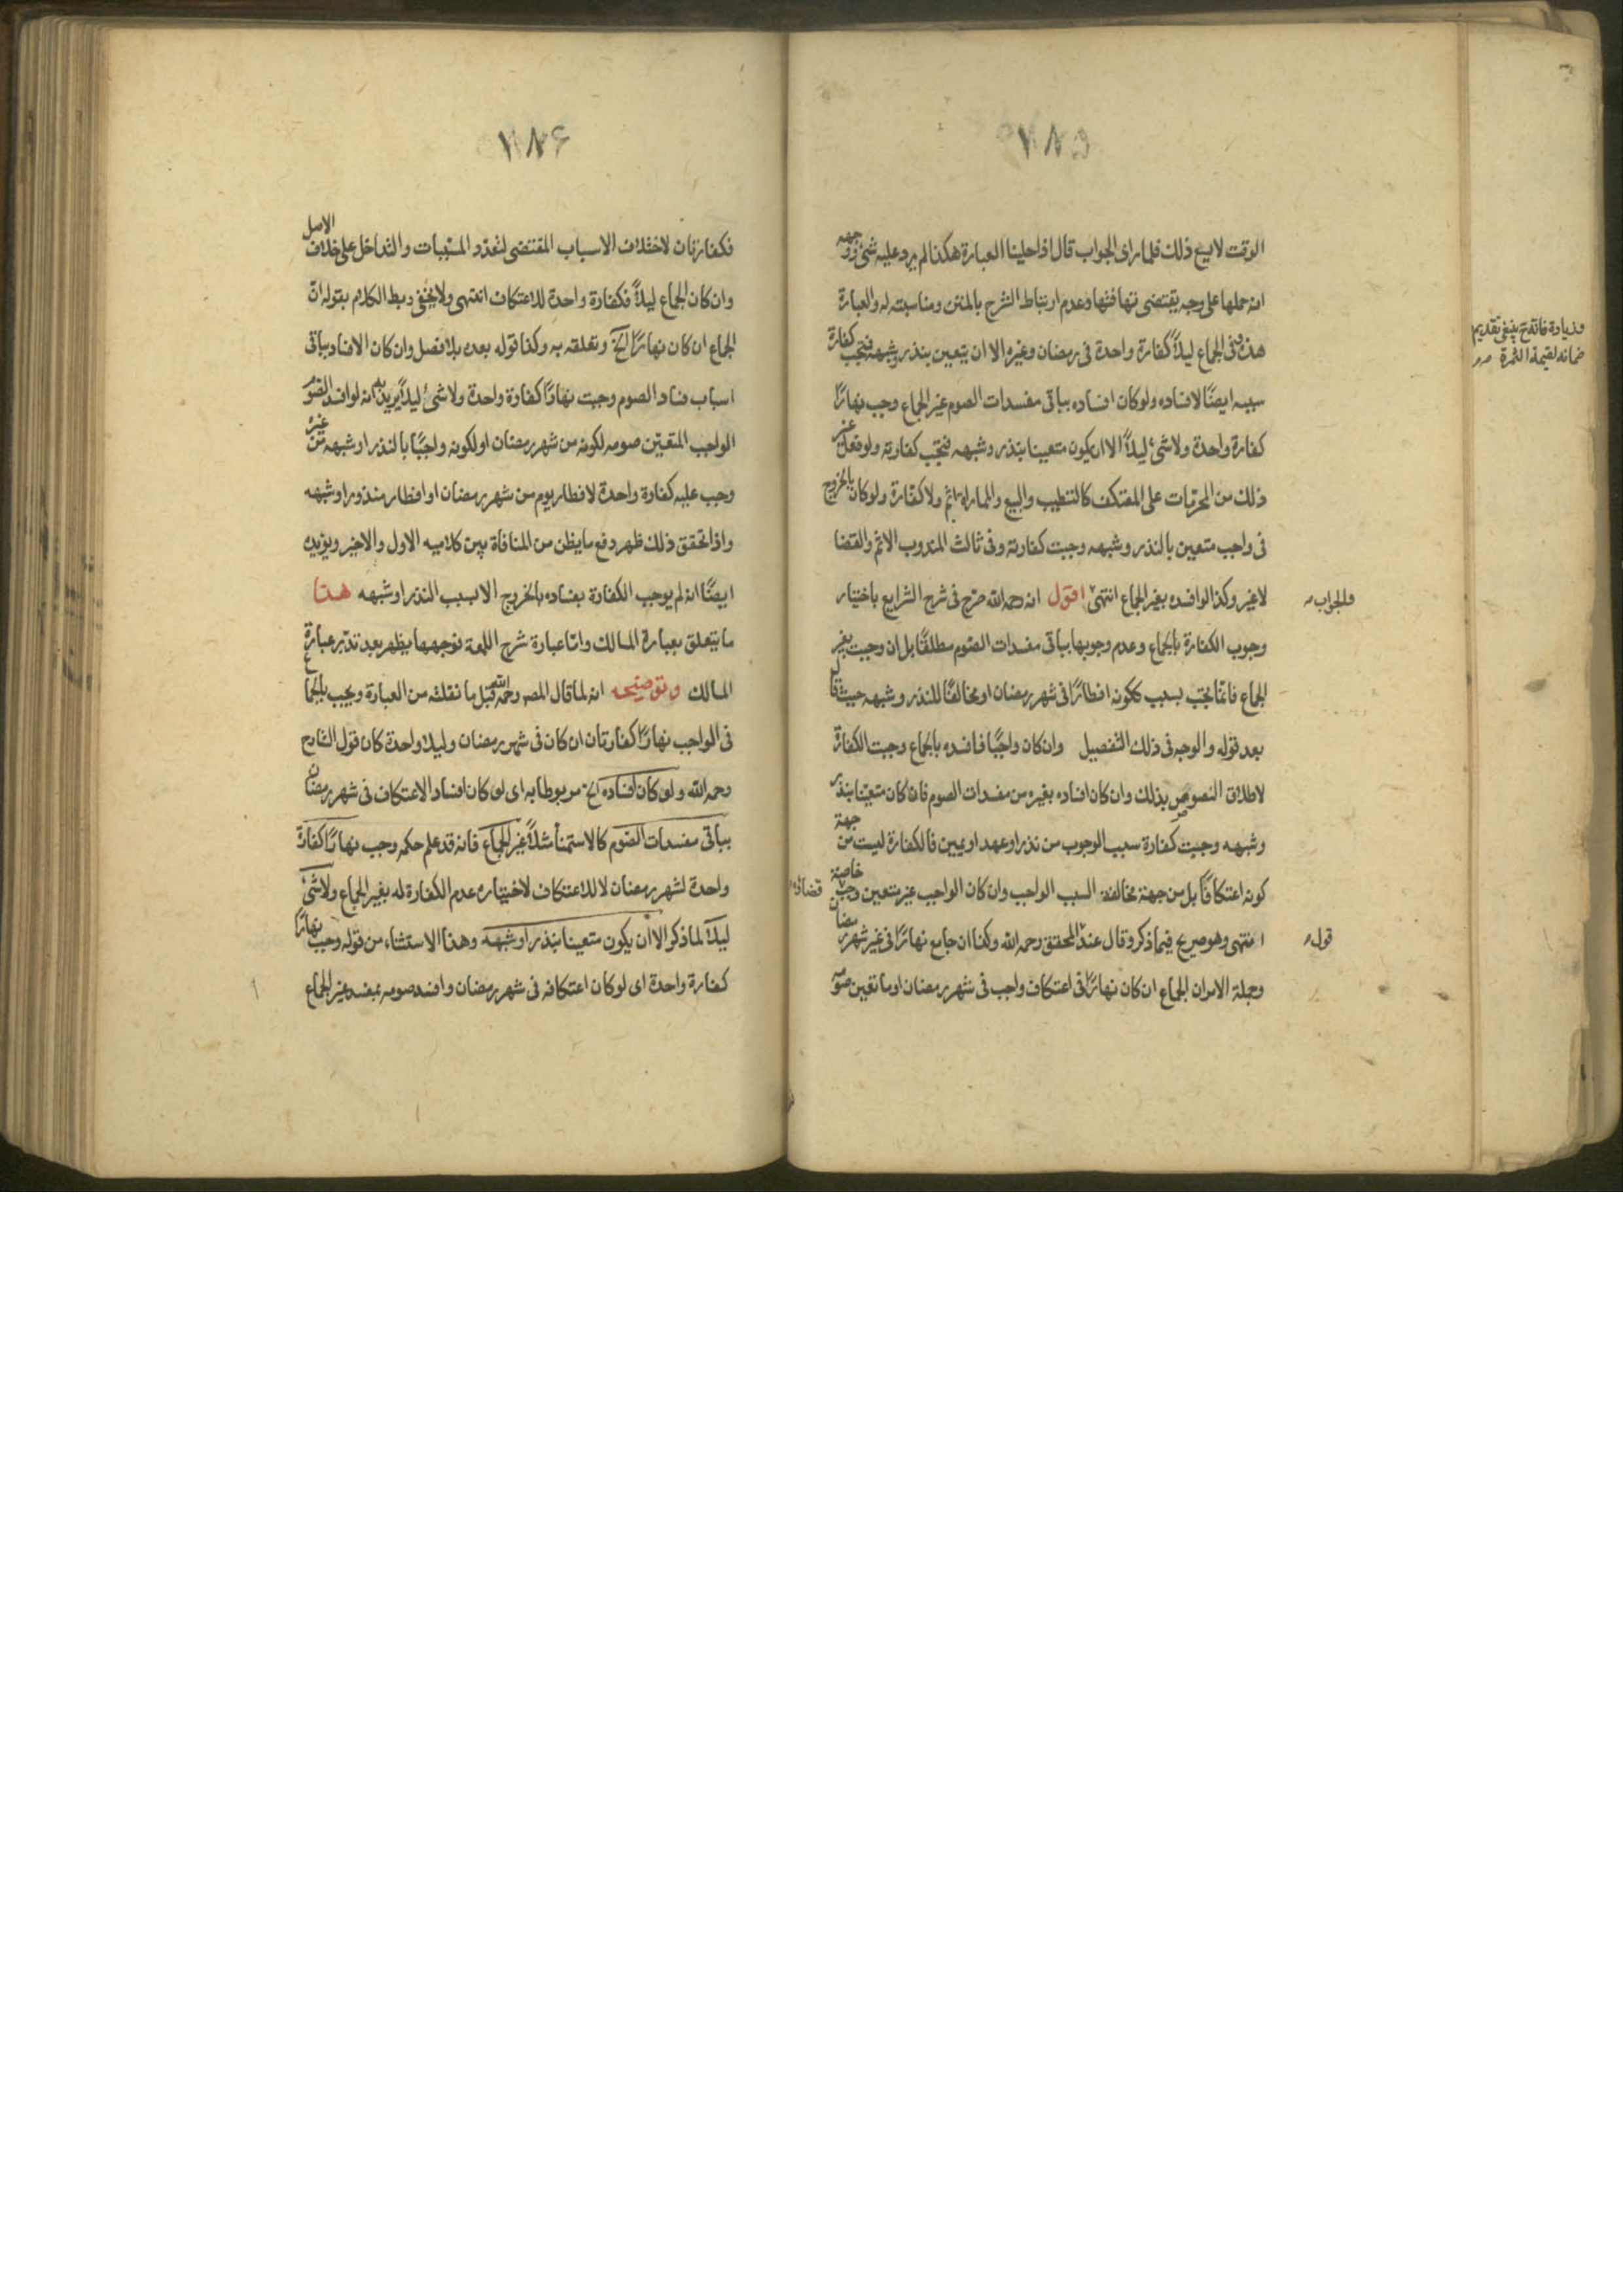 ١٨٥
الوقت لا يسع ذلك فلما رأى الجواب قال اذا حلينا العبارة هكذا لم يرد عليه شئ ووجهه
انه حملها على وجه يقتضى تهافتها وعدم ارتباط الشرح بالمتن ومناسبته له والعبارة
هذه وفى الجماع ليلاً كفارة واحدة فى رمضان وغيره الا ان يتعين بنذر وشبهه فتجب كفارة
سببه ايضًا لافساده ولو كان افساده بباقى مفسدات الصوم غير الجماع وجب نهارًا
كفارة واحدة ولا شئ ليلاً الا ان يكون متعينا بنذر وشبهه فتجب كفارته ولو فعل غير
ذلك من المحرمات على المعتكف كالتطيب والبيع والمماراة اثم ولا كفارة ولو كان بالخروج
فى واجب متعين بالنذر وشبهه وجبت كفارته وفى ثالث المندوب الاثم والقضا
لا غير وكذا لو افسده بغير الجماع انتهى اقول انه رحمه الله صرح فى شرح الشرايع باختيار
وجوب الكفارة بالجماع وعدم وجوبها بباقى مفسدات الصوم مطلقًا بل ان وجبت بغير
الجماع فانما تجب بسبب ككونه افطارًا فى شهر رمضان او مخالفًا للنذر وشبهه حيث قال
بعد قوله والوجه فى ذلك التفصيل وان كان واجبًا فافسده بالجماع وجبت الكفارة
لاطلاق النصوص بذلك وان كان افساده بغيره من مفسدات الصوم فان كان متعينا بنذر
وشبهه وجبت كفارة سبب الوجوب من نذر او عهد او يمين فالكفارة ليست من جهة
كونه اعتكافًا بل من جهة مخالفة السبب الواجب وان كان الواجب غير متعين وجب قضاؤه خاصة
انتهى وهو صريح فيما ذكر وقال عند المحقق رحمه الله وكذا ان جامع نهارًا فى غير شهر رمضان
وجملة الامر ان الجماع ان كان نهارًا فى اعتكاف واجب فى شهر رمضان او ما تعين صومه
وزيادة فائدة ينبغى تقديم
ضمانه لقيمة الثمرة
والجواب
قوله
١٨۶
فكفارتان لاختلاف الاسباب المقتضى لتعدد المسببات والتداخل على خلاف الاصل
وان كان الجماع ليلاً فكفارة واحدة للاعتكاف انتهى ولا يخفى ربط الكلام بقوله ان
الجماع ان كان نهارًا الخ وتعلقه به وكذا قوله بعده بلا فصل وان كان الافساد بباقى
اسباب فساد الصوم وجبت نهارًا كفارة واحدة ولا شئ ليلاً يريد به انه لو افسد الصوم
الواجب المتعين صومه لكونه من شهر رمضان او لكونه واجبًا بالنذر او شبهه من غيره
وجب عليه كفارة واحدة لافطار يوم من شهر رمضان او افطار منذور او شبهه
واذا تحقق ذلك ظهر دفع ما يظن من المنافاة بين كلاميه الاول والاخير ويؤيده
ايضًا انه لم يوجب الكفارة بفساده بالخروج الا بسبب النذر او شبهه هذا
ما يتعلق بعبارة المسالك واما عبارة شرح اللمعة فوجهها يظهر بعد تدبر عبارة
المسالك وتوضيحه انه لما قال المصر رحمه الله قبل ما نقلته من العبارة ويجب بالجماع
فى الواجب نهارًا كفارتان ان كان فى شهر رمضان وليلا واحدة كان قول الشارح
رحمه الله ولو كان افساده الخ مربوطا به اى لو كان افساد الاعتكاف فى شهر رمضان
بباقى مفسدات الصوم كالاستمناء مثلاً غير الجماع فانه قد علم حكمه وجب نهارًا كفارة
واحدة لشهر رمضان لا للاعتكاف لاختياره عدم الكفارة له بغير الجماع ولا شئ
ليلاً لما ذكر الا ان يكون متعينا بنذر او شبهه وهذا الاستثناء من قوله وجب نهارًا
كفارة واحدة اى لو كان اعتكافه فى شهر رمضان وافسد صومه بمفسد غير الجماع